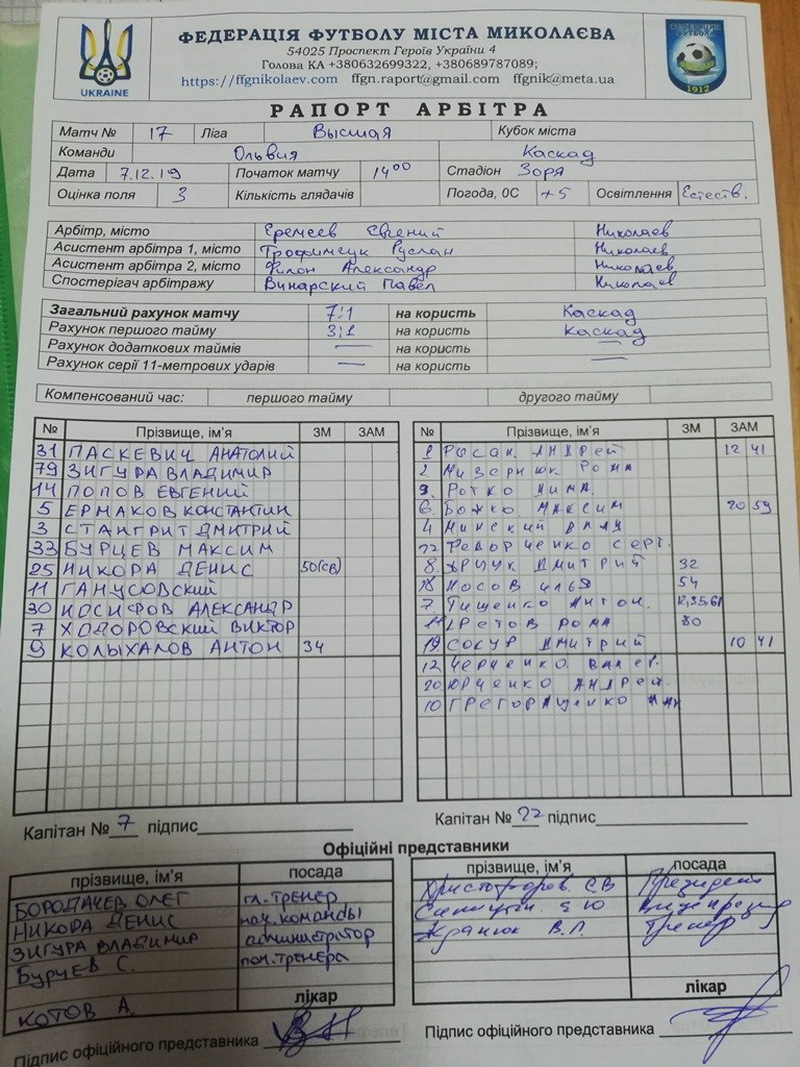 ФЕДЕРАЦІЯ ФУТБОЛУ МІСТА МИКОЛАЄВА
54025 Проспект Героїв України 4
Голова КА +380632699322, +380689787089;
https://ffgnikolaev.com ffgn.raport@gmail.com ffgnik@meta.ua
UKRAINE
1912
РАПОРТ АРБІТРА
Матч № 17 Ліга Высшая Кубок міста
Команди Ольвия Каскад
Дата 7.12.19 Початок матчу 14 00 Стадіон Зоря
Оцінка поля 3 Кількість глядачів Погода, 0С +5 Освітлення Естеств.
Арбітр, місто Еремеев Евгений Николаев
Асистент арбітра 1, місто Трофимчук Руслан Николаев
Асистент арбітра 2, місто Филон Александр Николаев
Спостерігач арбітражу Винарский Павел Николаев
Загальний рахунок матчу 7:1 на користь Каскад
Рахунок першого тайму 3:1 на користь Каскад
Рахунок додаткових таймів — на користь —
Рахунок серії 11-метрових ударів — на користь —
Компенсований час: першого тайму другого тайму
№ Прізвище, ім'я ЗМ ЗАМ
31 ПАСКЕВИЧ АНАТОЛИЙ
79 ЗИГУРА ВЛАДИМИР
14 ПОПОВ ЕВГЕНИЙ
5 ЕРМАКОВ КОНСТАНТИН
3 СТАНГРИТ ДМИТРИЙ
33 БУРЦЕВ МАКСИМ
25 НИКОРА ДЕНИС 50(св)
11 ГАНУСОВСКИЙ
30 НОСИРОВ АЛЕКСАНДР
7 ХОДОРОВСКИЙ ВИКТОР
9 КОЛЫХАЛОВ АНТОН 34
№ Прізвище, ім'я ЗМ ЗАМ
1 АНДРЕЙ 12 41
2 РОМА
9. РОТКО ДИМА.
6 БОЖКО МАКСИМ 20 59
4 МИНСКИЙ ВЛАД
22 ФЕДОРЧЕНКО СЕРГ.
8. ДМИТРИЙ 32
18 НОСОВ 54
7 ТИЩЕНКО АНТОН.
РОМА 80
19 СОКУР ДМИТРИЙ 10 41
12 ВАЛЕР.
20 ЮРЧЕНКО АНДРЕЙ.
10
Капітан № 7 підпис
Капітан № 22 підпис
Офіційні представники
прізвище, ім'я посада
БОРОДАЧЕВ ОЛЕГ гл. тренер
НИКОРА ДЕНИС нач. команды
ЗИГУРА ВЛАДИМИР администратор
Бурцев С. пом. тренера
лікар
КОТОВ А
Підпис офіційного представника
прізвище, ім'я посада
Христофоров С.В Президент
Ю
В.П. Тренер
лікар
Підпис офіційного представника